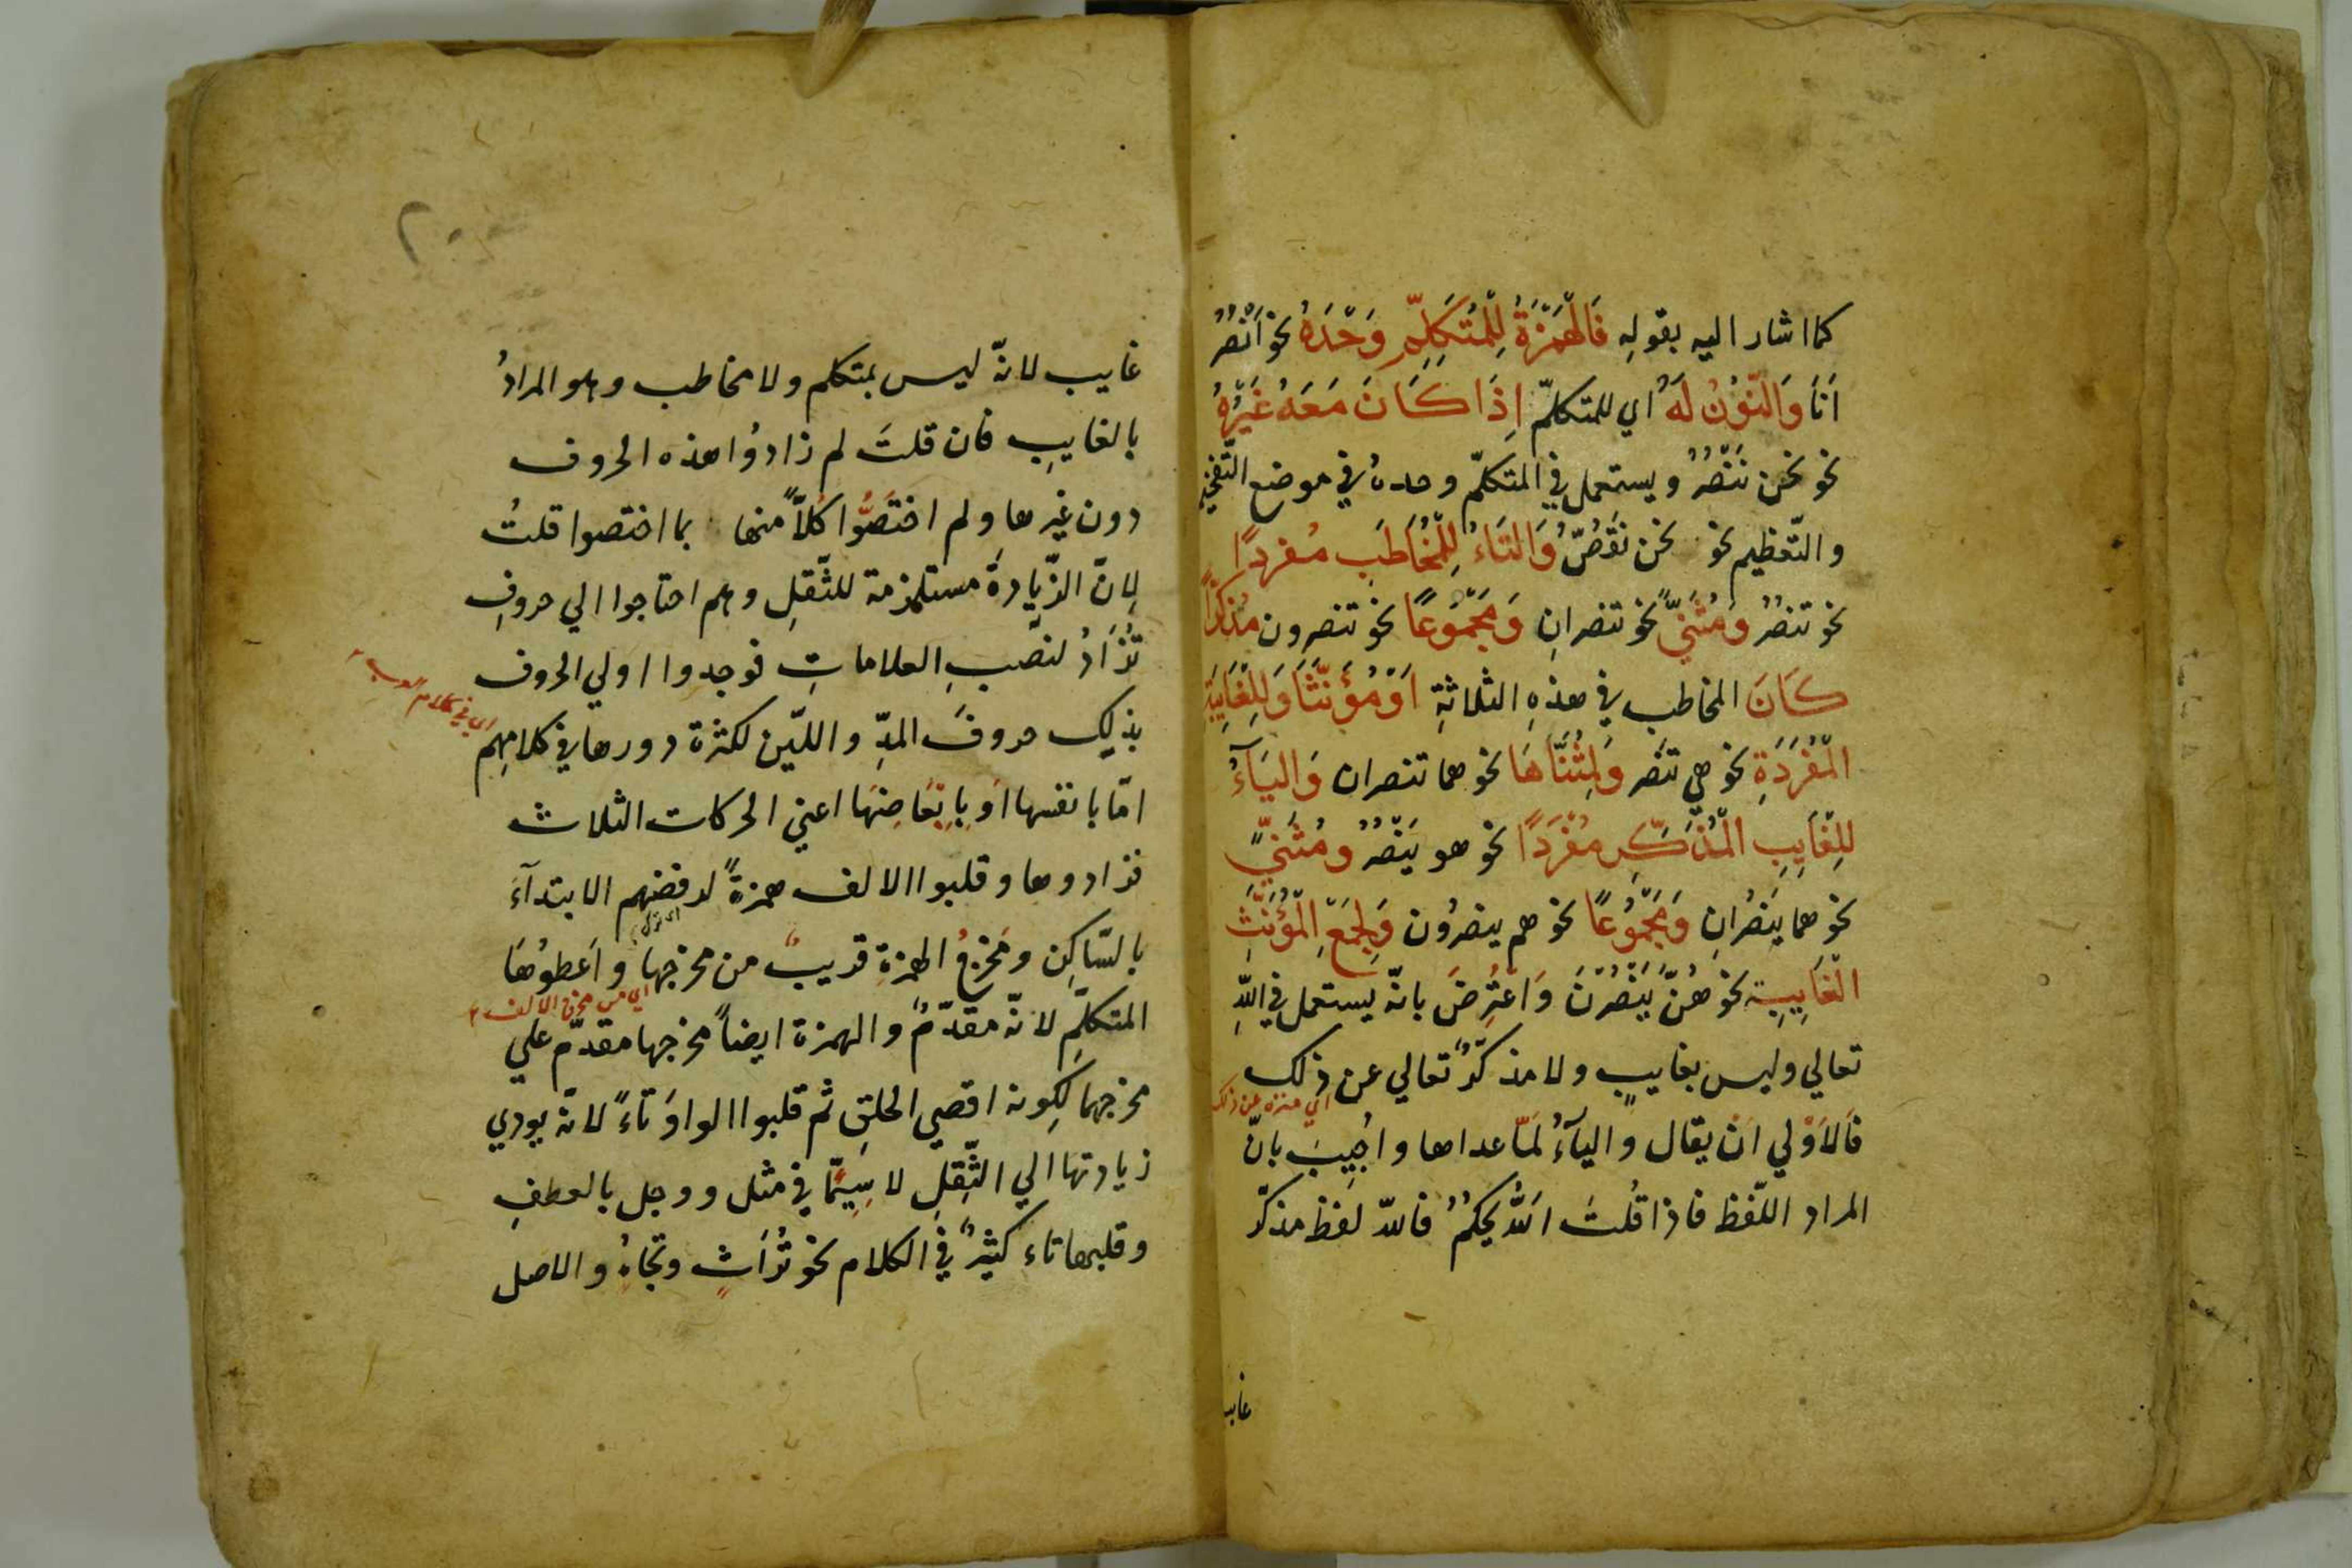 كما اشار اليه بقولِهِ فَالْهَمْزَةُ لِلْمُتَكَلِّمِ وَحْدَهُ نحو اَنْصُرُ
اَنَا وَالنُّونُ لَهُ اي للمتكلّم اِذَا كَانَ مَعَهُ غَيْرُهُ
نحو نحن نَنْصُرُ ويستعمل في المتكلّم وحدهُ في موضع التّفخيم
والتّعظيم نحو نحن نَقُصُّ وَالتَاءُ لِلْمُخَاطَبِ مُفردًا
نحو تنصُرُ وَمُثَنًّي نحو تنصرانِ وَمَجْمُوعًا نحو تنصرون مُذكّرًا
كَانَ المخاطب في هذهِ الثلاثةِ اَوْ مُؤَنَّثًا وَلِلْغَايِبَةِ
الْمُفْرَدَةِ نحو هي تنصُر وَلِمُثَنَّاهَا نحو هما تنصران وَاليَآءُ
لِلْغَايِبِ الْمُذَكَّرِ مُفْرَدًا نحو هو يَنْصُرُ ومُثَنًّي
نحو هما يَنصُرَانِ وَمَجْمُوعًا نحو هم ينصرُون وَلِجَمْعِ الْمُؤَنَّثِ
الْغَايِبِة نحو هُنَّ يَنْصُرْنَ وَاعتُرِضَ بانّه يستعمل في اللّهِ
تعالي وليس بغايبٍ ولا مذكّرٍ تعالي عن ذلك
اي منزه عن ذلك
فَالاَوْلي اَنْ يقال واليآءُ لمَا عداها واُجِيبَ بانّ
المراد اللّفظ فاذا قُلتَ اَللّهُ يحكمُ فاللّه لفظ مذكّر
غايب
٢٠
غايب لانّه ليس بمتكلم ولا مخاطب وهو المرادُ
بالغايبِ فان قلتَ لم زادوُا هذه الحروف
دون غيرها ولم اختَصُّوا كُلاًّ منها بما اختصوا قلتُ
لِانّ الزّيادةَ مستلزمة للثّقلِ وهم احتاجوا الي حروفٍ
تُزَادُ لنصبِ العلاماتِ فوجدوا اولي الحروف
بذلك حروفَ المدِّ واللّين لكثرة دورها في كلامِهِم
اي في كلام العرب
امّا بانفسها اَو بِاَبْعَاضِهَا اعني الحركات الثلاث
فزادوها وقلبوا الالف همزةً لرفضهم الابتدآءَ
بالسّاكِنِ ومَخرَجُ الهمزةِ قريبٌ من مخرجها واَعطوُهَا
اي من مخرج الالف
المتكلّمِ لانّه مقدّمٌ والهمزة ايضاً مخرجها مقدّم علي
مخرجهما لكِونه اقصي الحلقِ ثم قلبوا الواوَ تاءً لانّه يودي
زيادتها الي الثِّقلِ لا سِيَّما في مثل ووجل بالعطفِ
وقلبها تاء كثيرٌ في الكلام نحو تُرَاثٍ وتُجَاهٍ والاصل